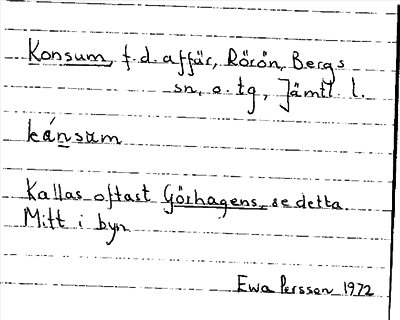 Konsum, f.d. affär, Rörön, Bergs
sn, o. tg, Jämtl. l.
kånsum
Kallas oftast Görhagens, se detta.
Mitt i byn
Ewa Persson 1972